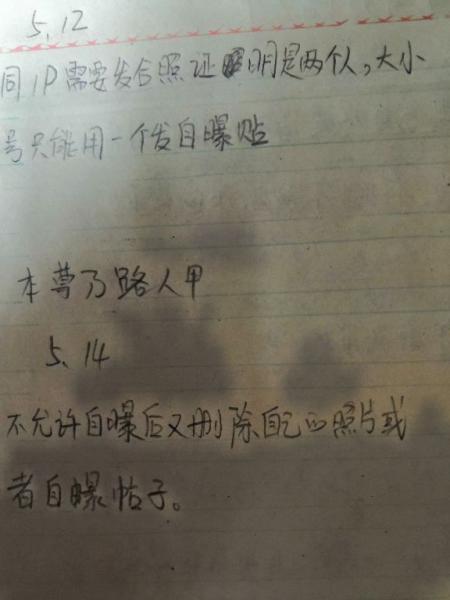 5.12
同IP需要发合照证明是两个人,大小
号只能用一个发自曝贴
本尊乃路人甲
5.14
不允许自曝后又删除自己的照片或
者自曝帖子。